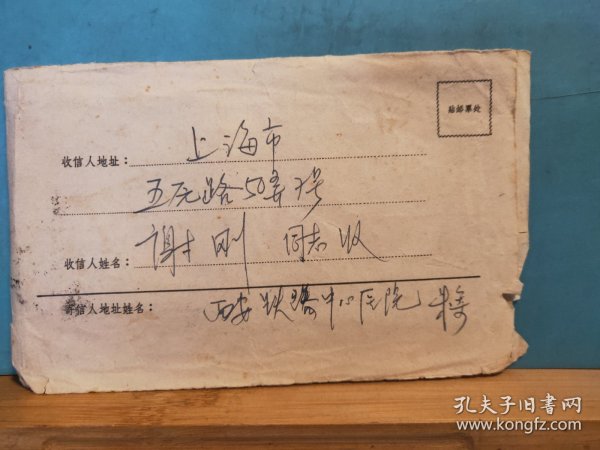 贴邮票处
收信人地址：上海市
五原路50弄7号
收信人姓名：谢刚 同志收
寄信人地址姓名：西安铁路中心医院
孔夫子旧书网
www.kongfz.com